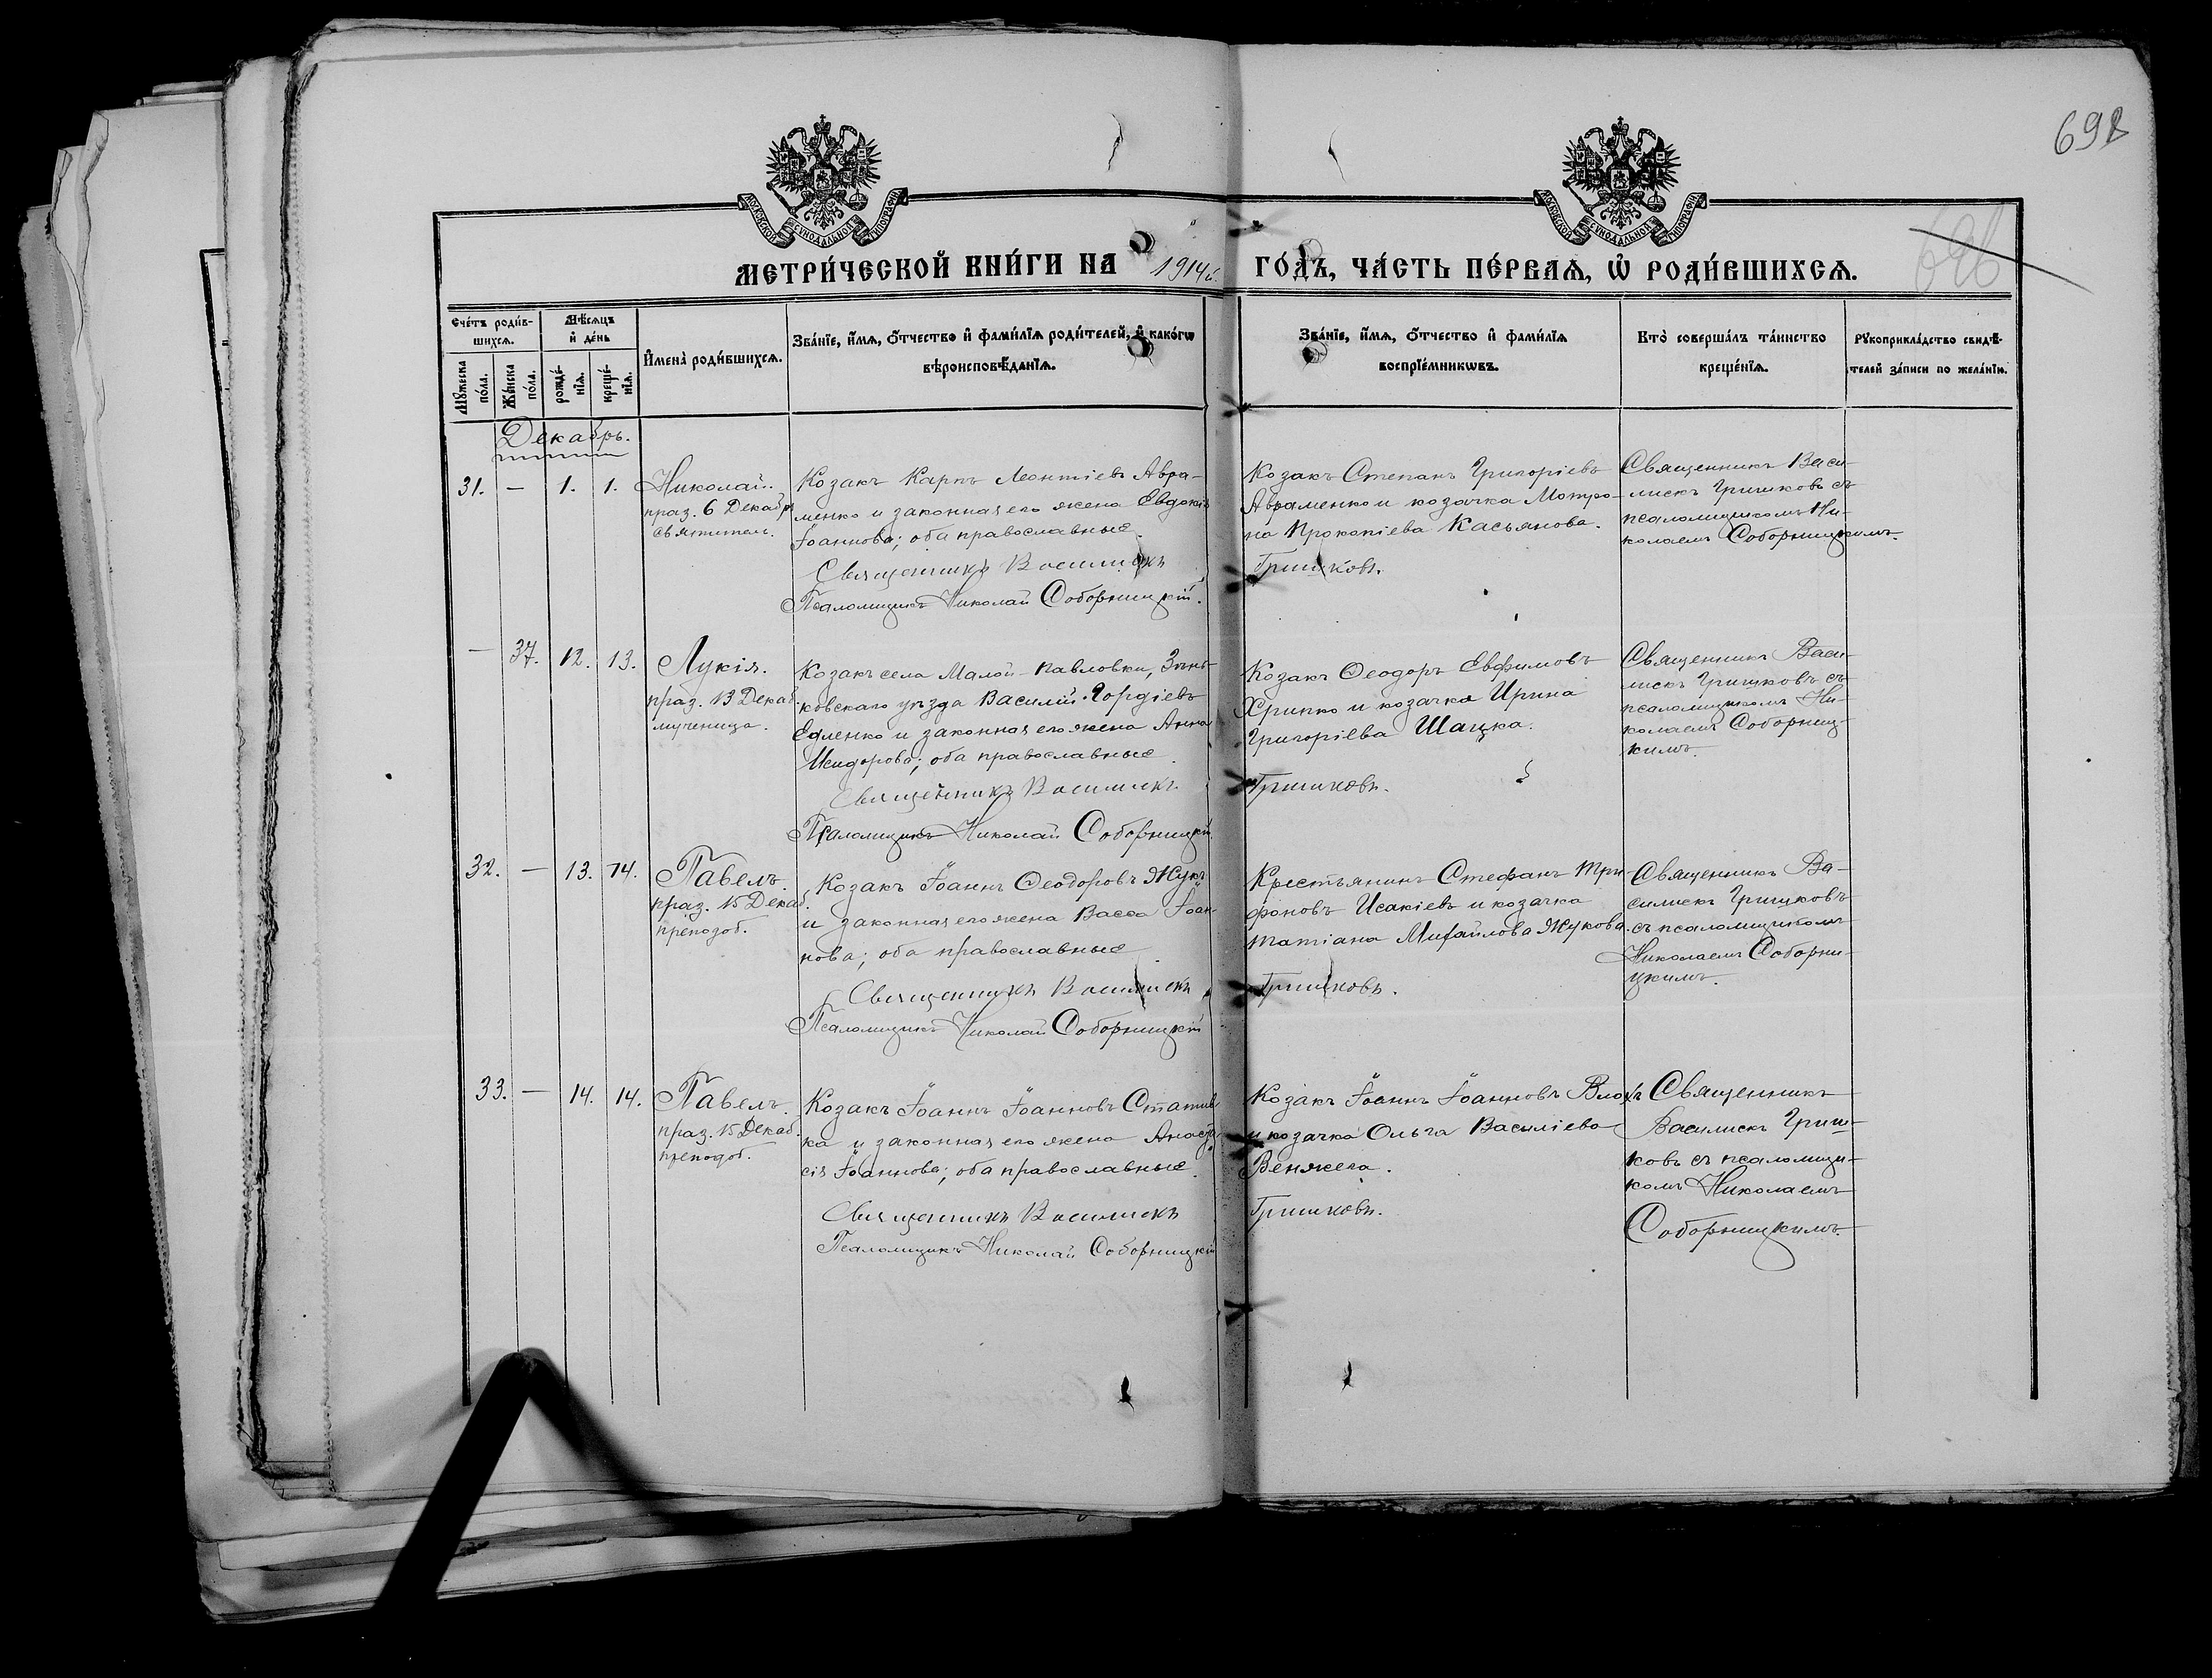 698
696
МОСКОВСКОЙ СѴНОДАЛЬНОЙ ТИПОГРАФІИ
МОСКОВСКОЙ СѴНОДАЛЬНОЙ ТИПОГРАФІИ
МЕТРИ́ЧЕСКОЙ КНИ́ГИ НА 1914й ГО́ДЪ, ЧА́СТЬ ПЕ́РВАЯ, Ѽ РОДИ́ВШИХСЯ.
Сче́тъ роди́в-
шихся.
Мѣ́сяцъ
и҆ де́нь
Мꙋ́жеска
по́ла.
Же́нска
по́ла.
рожде́-
нїя.
креще́-
нїя.
И҆мена̀ роди́вшихся.
Зва́нїе, и҆́мя, ѻ҆́тчество и҆ фами́лїя роди́телей, и҆ како́гѡ
вѣроисповѣ́данїя.
Зва́нїе, и҆́мя, ѻ҆́тчество и҆ фами́лїя
воспрїе́мникѡвъ.
Кто̀ соверша́лъ та́инство
креще́нїя.
Рꙋкоприкла́дство свидѣ́-
телей за́писи по жела́нїю.
Декабрь.
31. — 1. 1.
Николай.
праз. 6 Декабр
святитель.
Козакъ Карпъ Леонтіевъ Авра-
менко и законная его жена Евдокія
Іоаннова; оба православные.
Священникъ Василискъ
Псаломщикъ Николай Соборницкій.
Козакъ Степанъ Григоріевъ
Авраменко и козачка Мотро-
на Прокопіева Касьянова.
Гришковъ.
Священникъ Васи-
лискъ Гришковъ съ
псаломщикомъ Ни-
колаемъ Соборницкимъ.
— 37. 12. 13.
Лукія.
праз. 13 Декаб.
мученица.
Козакъ села Малой-Павловки, Зѣнь-
ковскаго уѣзда Василій Гордіевъ
Едленко и законная его жена Анна
Исидорова; оба православные.
Священникъ Василискъ
Псаломщикъ Николай Соборницкій.
Козакъ Ѳеодоръ Евфимовъ
Хрипко и козачка Ирина
Григоріева Шацка.
Гришковъ.
Священникъ Васи-
лискъ Гришковъ съ
псаломщикомъ Ни-
колаемъ Соборниц-
кимъ.
32. — 13. 14.
Павелъ.
праз. 15 Декаб.
преподоб.
Козакъ Іоаннъ Ѳеодоровъ Жукъ
и законная его жена Васса Іоан-
нова; оба православные.
Священникъ Василискъ
Псаломщикъ Николай Соборницкій
Крестьянинъ Стефанъ Три-
фоновъ Исакіевъ и козачка
Татіана Михайлова Жукова.
Гришковъ.
Священникъ Ва-
силискъ Гришковъ
съ псаломщикомъ
Николаемъ Соборни-
цкимъ.
33. — 14. 14.
Павелъ.
праз. 15 Декаб.
преподоб.
Козакъ Іоаннъ Іоанновъ Статив
ка и законная его жена Анаста
сія Іоаннова; оба православные.
Священникъ Василискъ
Псаломщикъ Николай Соборницкій
Козакъ Іоаннъ Іоанновъ
и козачка Ольга Василіева
Венжега.
Гришковъ.
Священникъ
Василискъ Гриш-
ковъ съ псаломщи-
комъ Николаемъ
Соборницкимъ.